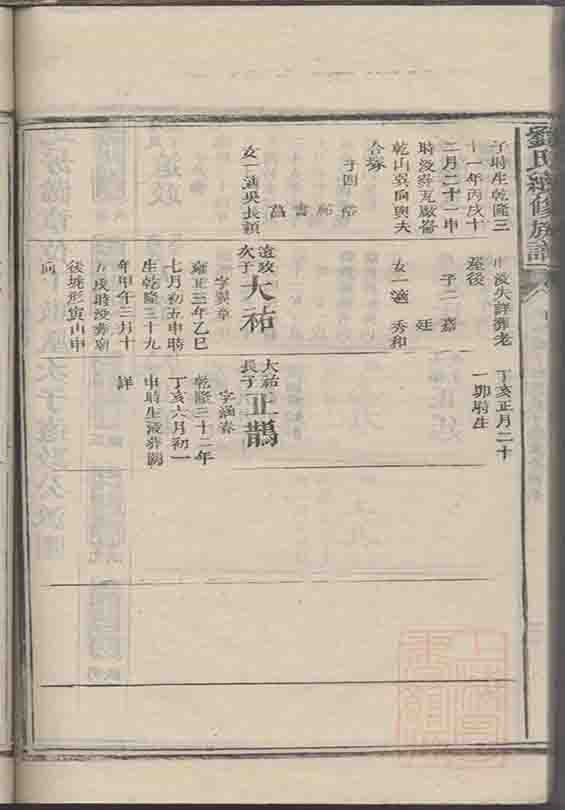 劉氏續修族譜
子時生乾隆三
十一年丙戌十
二月二十一申
時没葬瓦廠崙
乾山巽向與夫
合塚
子四
裕
祐
書
菖
女一適吳長穎
申没失詳葬老
屋後
子二
嘉
廷
女一適
秀和
遠攻
次子
大祐
字巽章
雍正三年乙巳
七月初五申時
生乾隆三十九
年甲午三月十
九戌時没葬廟
後塘形寅山申
向
丁亥正月二十
一卯時生
大祐
長子
正鵲
字涵春
乾隆三十二年
丁亥六月初一
申時生没葬闕
詳